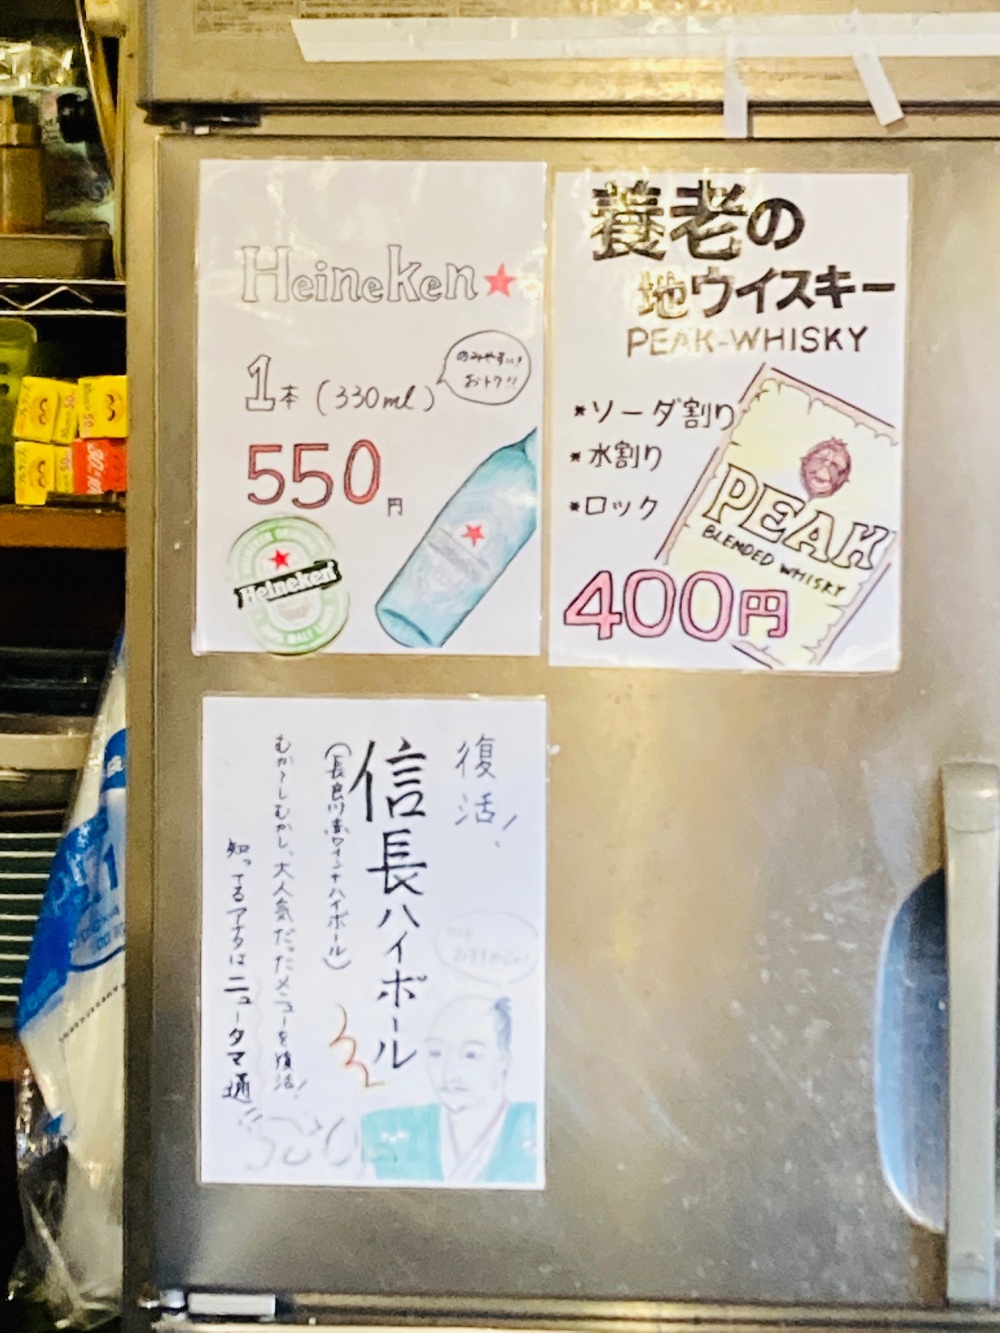 Heineken★
1本(330ml)
のみやすい!
おトク!!
550円
Heineken
養老の
地ウイスキー
PEAK-WHISKY
*ソーダ割り
*水割り
*ロック
PEAK
BLENDED WHISKY
400円
復活!
信長ハイボール
(長良川赤ワイン+ハイボール)
むか〜しむかし、大人気だったメニューを復活!
知ってるアナタはニュータマ通!!